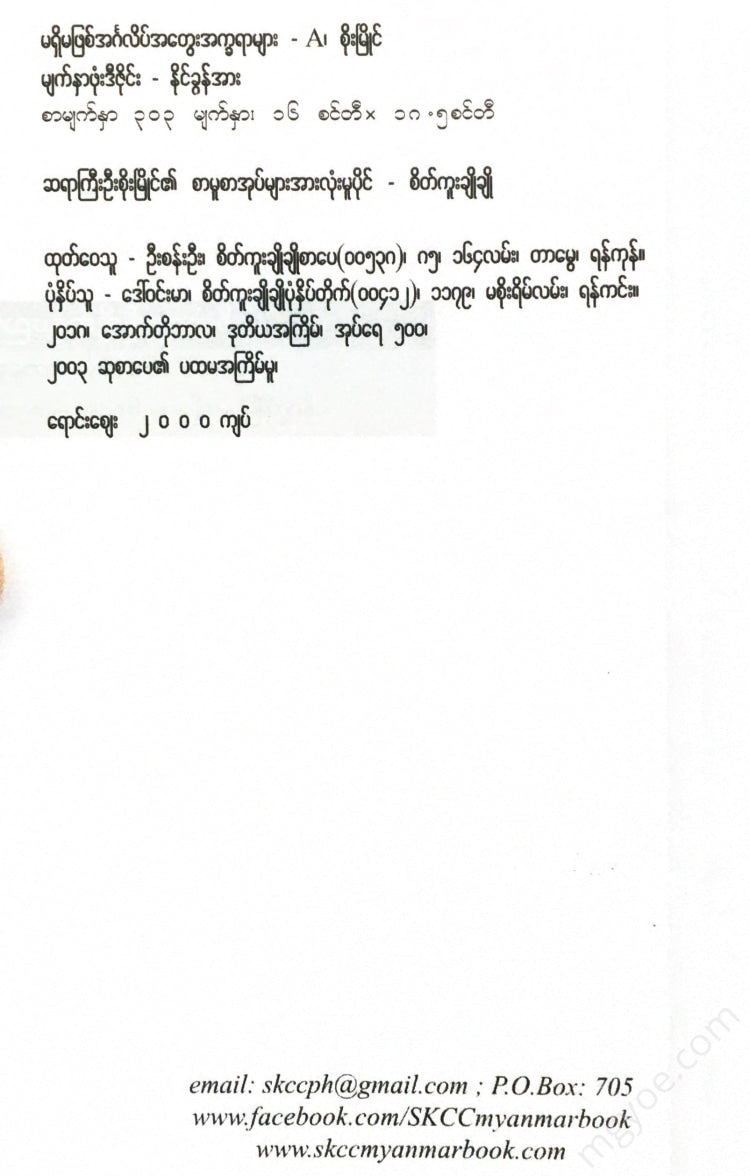 မရှိမဖြစ်အင်္ဂလိပ်အတွေးအက္ခရာများ - A၊ စိုးမြိုင်
မျက်နှာဖုံးဒီဇိုင်း - နိုင်ခွန်အား
စာမျက်နှာ ၃၀၃ မျက်နှာ၊ ၁၆ စင်တီ× ၁၈.၅စင်တီ
ဆရာကြီးဦးစိုးမြိုင်၏ စာမူစာအုပ်များအားလုံးမူပိုင် - စိတ်ကူးချိုချို
ထုတ်ဝေသူ - ဦးစန်းဦး၊ စိတ်ကူးချိုချိုစာပေ(၀၀၅၃၈)၊ ၈၅၊ ၁၆၄လမ်း၊ တာမွေ၊ ရန်ကုန်။
ပုံနှိပ်သူ - ဒေါ်ဝင်းမာ၊ စိတ်ကူးချိုချိုပုံနှိပ်တိုက်(၀၀၄၁၂)၊ ၁၁၇၉၊ မစိုးရိမ်လမ်း၊ ရန်ကင်း။
၂၀၁၈၊ အောက်တိုဘာလ၊ ဒုတိယအကြိမ်၊ အုပ်ရေ ၅၀၀၊
၂၀၀၃ ဆုစာပေ၏ ပထမအကြိမ်မူ၊
ရောင်းဈေး ၂ ၀ ၀ ၀ ကျပ်
email: skccph@gmail.com ; P.O.Box: 705
www.facebook.com/SKCCmyanmarbook
www.skccmyanmarbook.com
mgyoe.com